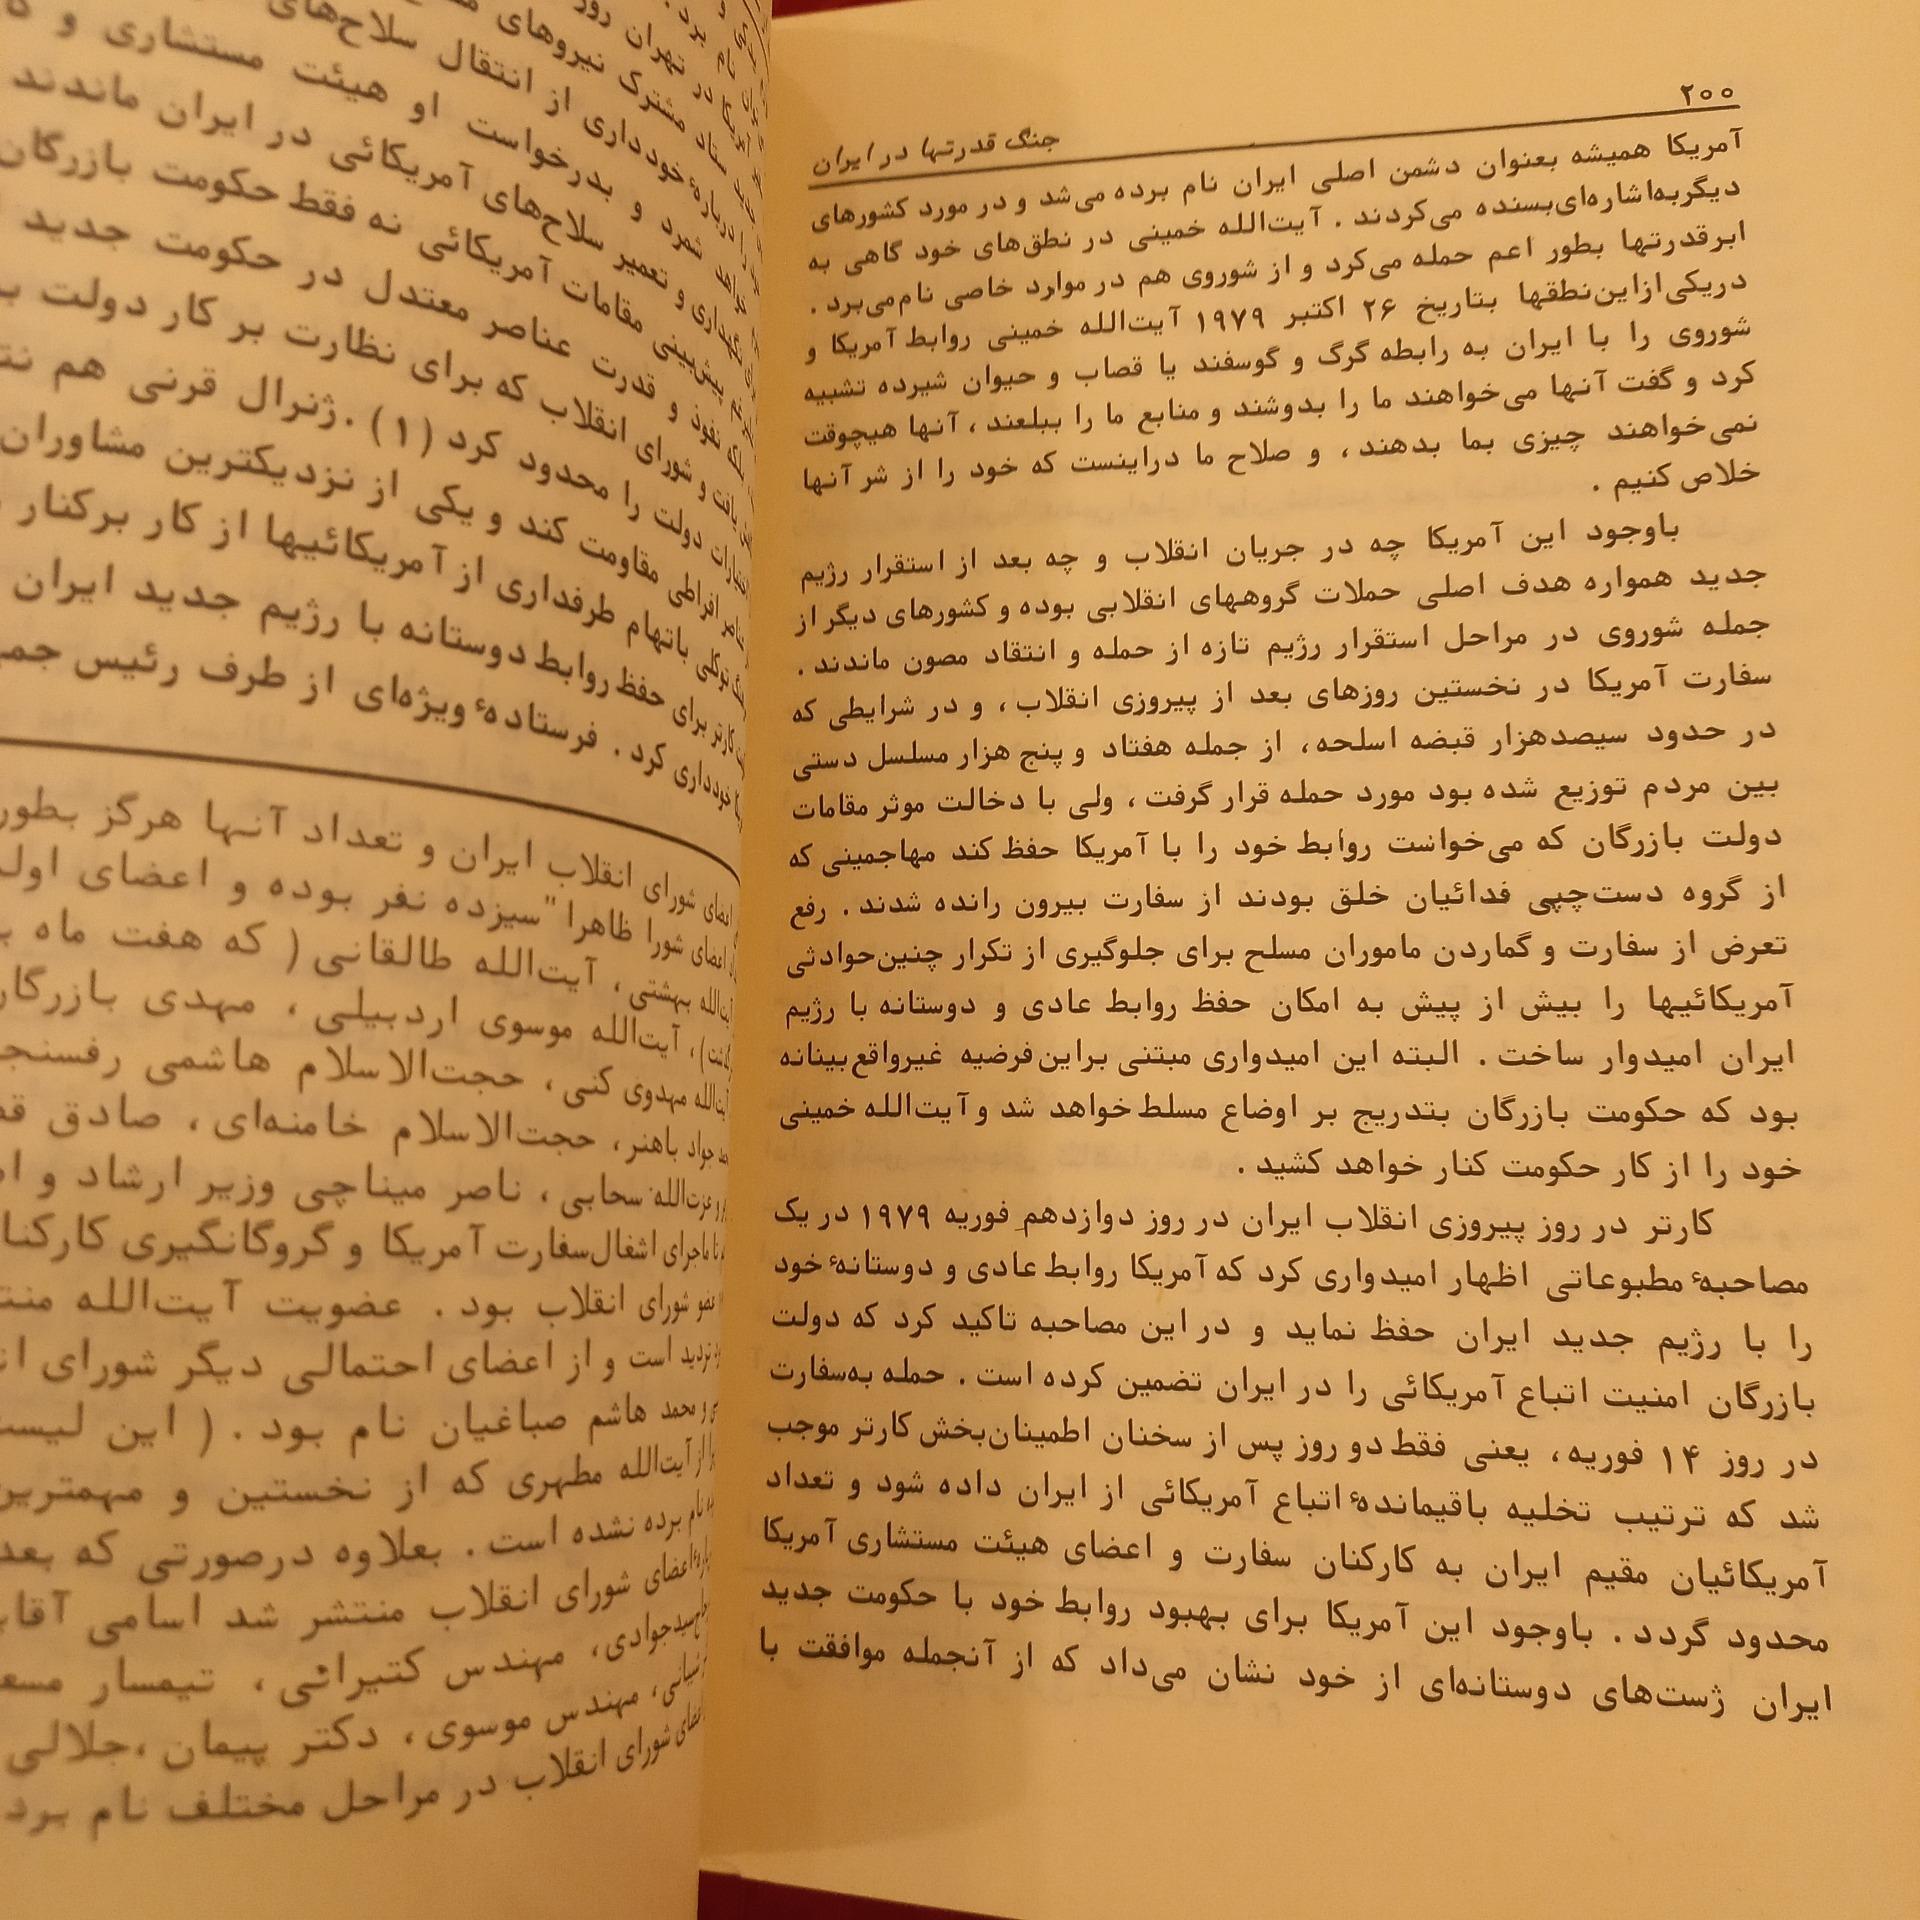 ۲۰۰
جنگ قدرتها در ایران
آمریکا همیشه بعنوان دشمن اصلی ایران نام برده می‌شد و در مورد کشورهای
دیگربه‌اشاره‌ای‌بسنده می‌کردند . آیت‌الله خمینی در نطق‌های خود گاهی به
ابرقدرتها بطور اعم حمله می‌کرد و از شوروی هم در موارد خاصی نام‌می‌برد .
دریکی‌ازاین‌نطقها بتاریخ ۲۶ اکتبر ۱۹۷۹ آیت‌الله خمینی روابط آمریکا و
شوروی را با ایران به رابطه گرگ و گوسفند یا قصاب و حیوان شیرده تشبیه
کرد و گفت آنها می‌خواهند ما را بدوشند و منابع ما را ببلعند ، آنها هیچوقت
نمی‌خواهند چیزی بما بدهند ، و صلاح ما دراینست که خود را از شر آنها
خلاص کنیم .
باوجود این آمریکا چه در جریان انقلاب و چه بعد از استقرار رژیم
جدید همواره هدف اصلی حملات گروههای انقلابی بوده و کشورهای دیگر از
جمله شوروی در مراحل استقرار رژیم تازه از حمله و انتقاد مصون ماندند .
سفارت آمریکا در نخستین روزهای بعد از پیروزی انقلاب ، و در شرایطی که
در حدود سیصدهزار قبضه اسلحه، از جمله هفتاد و پنج هزار مسلسل دستی
بین مردم توزیع شده بود مورد حمله قرار گرفت ، ولی با دخالت موثر مقامات
دولت بازرگان که می‌خواست روابط خود را با آمریکا حفظ کند مهاجمینی که
از گروه دست‌چپی فدائیان خلق بودند از سفارت بیرون رانده شدند . رفع
تعرض از سفارت و گماردن ماموران مسلح برای جلوگیری از تکرار چنین‌حوادثی
آمریکائیها را بیش از پیش به امکان حفظ روابط عادی و دوستانه با رژیم
ایران امیدوار ساخت . البته این امیدواری مبتنی براین‌فرضیه غیرواقع‌بینانه
بود که حکومت بازرگان بتدریج بر اوضاع مسلط خواهد شد و آیت‌الله خمینی
خود را از کار حکومت کنار خواهد کشید .
کارتر در روز پیروزی انقلاب ایران در روز دوازدهم فوریه ۱۹۷۹ در یک
مصاحبهٔ مطبوعاتی اظهار امیدواری کرد که آمریکا روابط عادی و دوستانهٔ خود
را با رژیم جدید ایران حفظ نماید و در این مصاحبه تاکید کرد که دولت
بازرگان امنیت اتباع آمریکائی را در ایران تضمین کرده است . حمله به‌سفارت
در روز ۱۴ فوریه، یعنی فقط دو روز پس از سخنان اطمینان‌بخش کارتر موجب
شد که ترتیب تخلیه باقیماندهٔ اتباع آمریکائی از ایران داده شود و تعداد
آمریکائیان مقیم ایران به کارکنان سفارت و اعضای هیئت مستشاری آمریکا
محدود گردد . باوجود این آمریکا برای بهبود روابط خود با حکومت جدید
ایران ژست‌های دوستانه‌ای از خود نشان می‌داد که از آنجمله موافقت با
در تهران روز
مشترک نیروهای
دربارهٔ خودداری از انتقال سلاح‌های
شمرد و بدرخواست او هیئت مستشاری و
و تعمیر سلاح‌های آمریکائی در ایران ماندند
پیش‌بینی مقامات آمریکائی نه فقط حکومت بازرگان
نفوذ و قدرت عناصر معتدل در حکومت جدید
یافت و شورای انقلاب که برای نظارت بر کار دولت
دولت را محدود کرد (۱) . ژنرال قرنی هم
افراطی مقاومت کند و یکی از نزدیکترین مشاوران
توکلی باتهام طرفداری از آمریکائیها از کار برکنار
کارتر برای حفظ روابط دوستانه با رژیم جدید ایران
خودداری کرد . فرستادهٔ ویژه‌ای از طرف رئیس
اعضای شورای انقلاب ایران و تعداد آنها هرگز بطور
اعضای شورا ظاهرا" سیزده نفر بوده و اعضای
بهشتی ، آیت‌الله طالقانی ( که هفت ماه
آیت‌الله موسوی اردبیلی ، مهدی
مهدوی کنی ، حجت‌الاسلام هاشمی
جواد باهنر، حجت‌الاسلام خامنه‌ای ، صادق
و عزت‌الله سحابی ، ناصر میناچی وزیر ارشاد و
تا ماجرای اشغال‌سفارت آمریکا و گروگانگیری
عضو شورای انقلاب بود . عضویت آیت‌الله
تردید است و از اعضای احتمالی دیگر شورای
و محمد هاشم صباغیان نام بود . ( این
از آیت‌الله مطهری که از نخستین و مهمترین
نام برده نشده است . بعلاوه درصورتی که
اعضای شورای انقلاب منتشر شد اسامی
مهندس کتیرائی ، تیمسار
مهندس موسوی ، دکتر پیمان ،جلالی
شورای انقلاب در مراحل مختلف نام